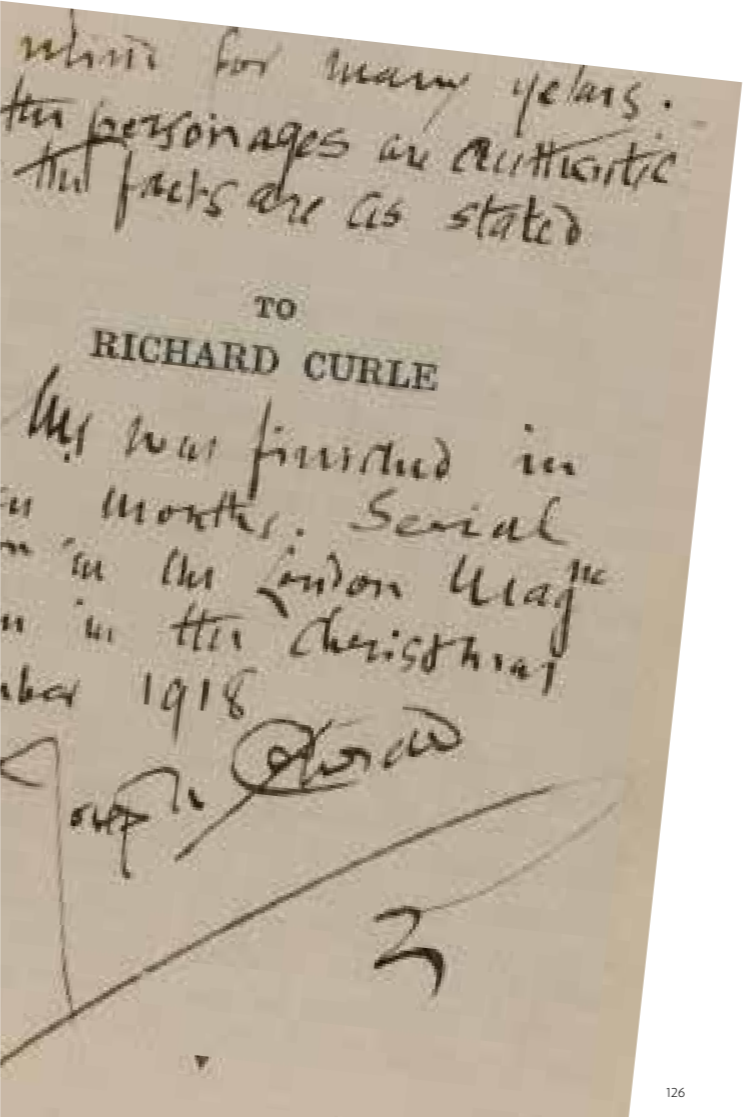 mine for many years.
the personages are authentic
the facts are as stated
TO
RICHARD CURLE
MS was finished in
months. Serial
in the London Magne
in the Christmas
mber 1918
Joseph Conrad
126